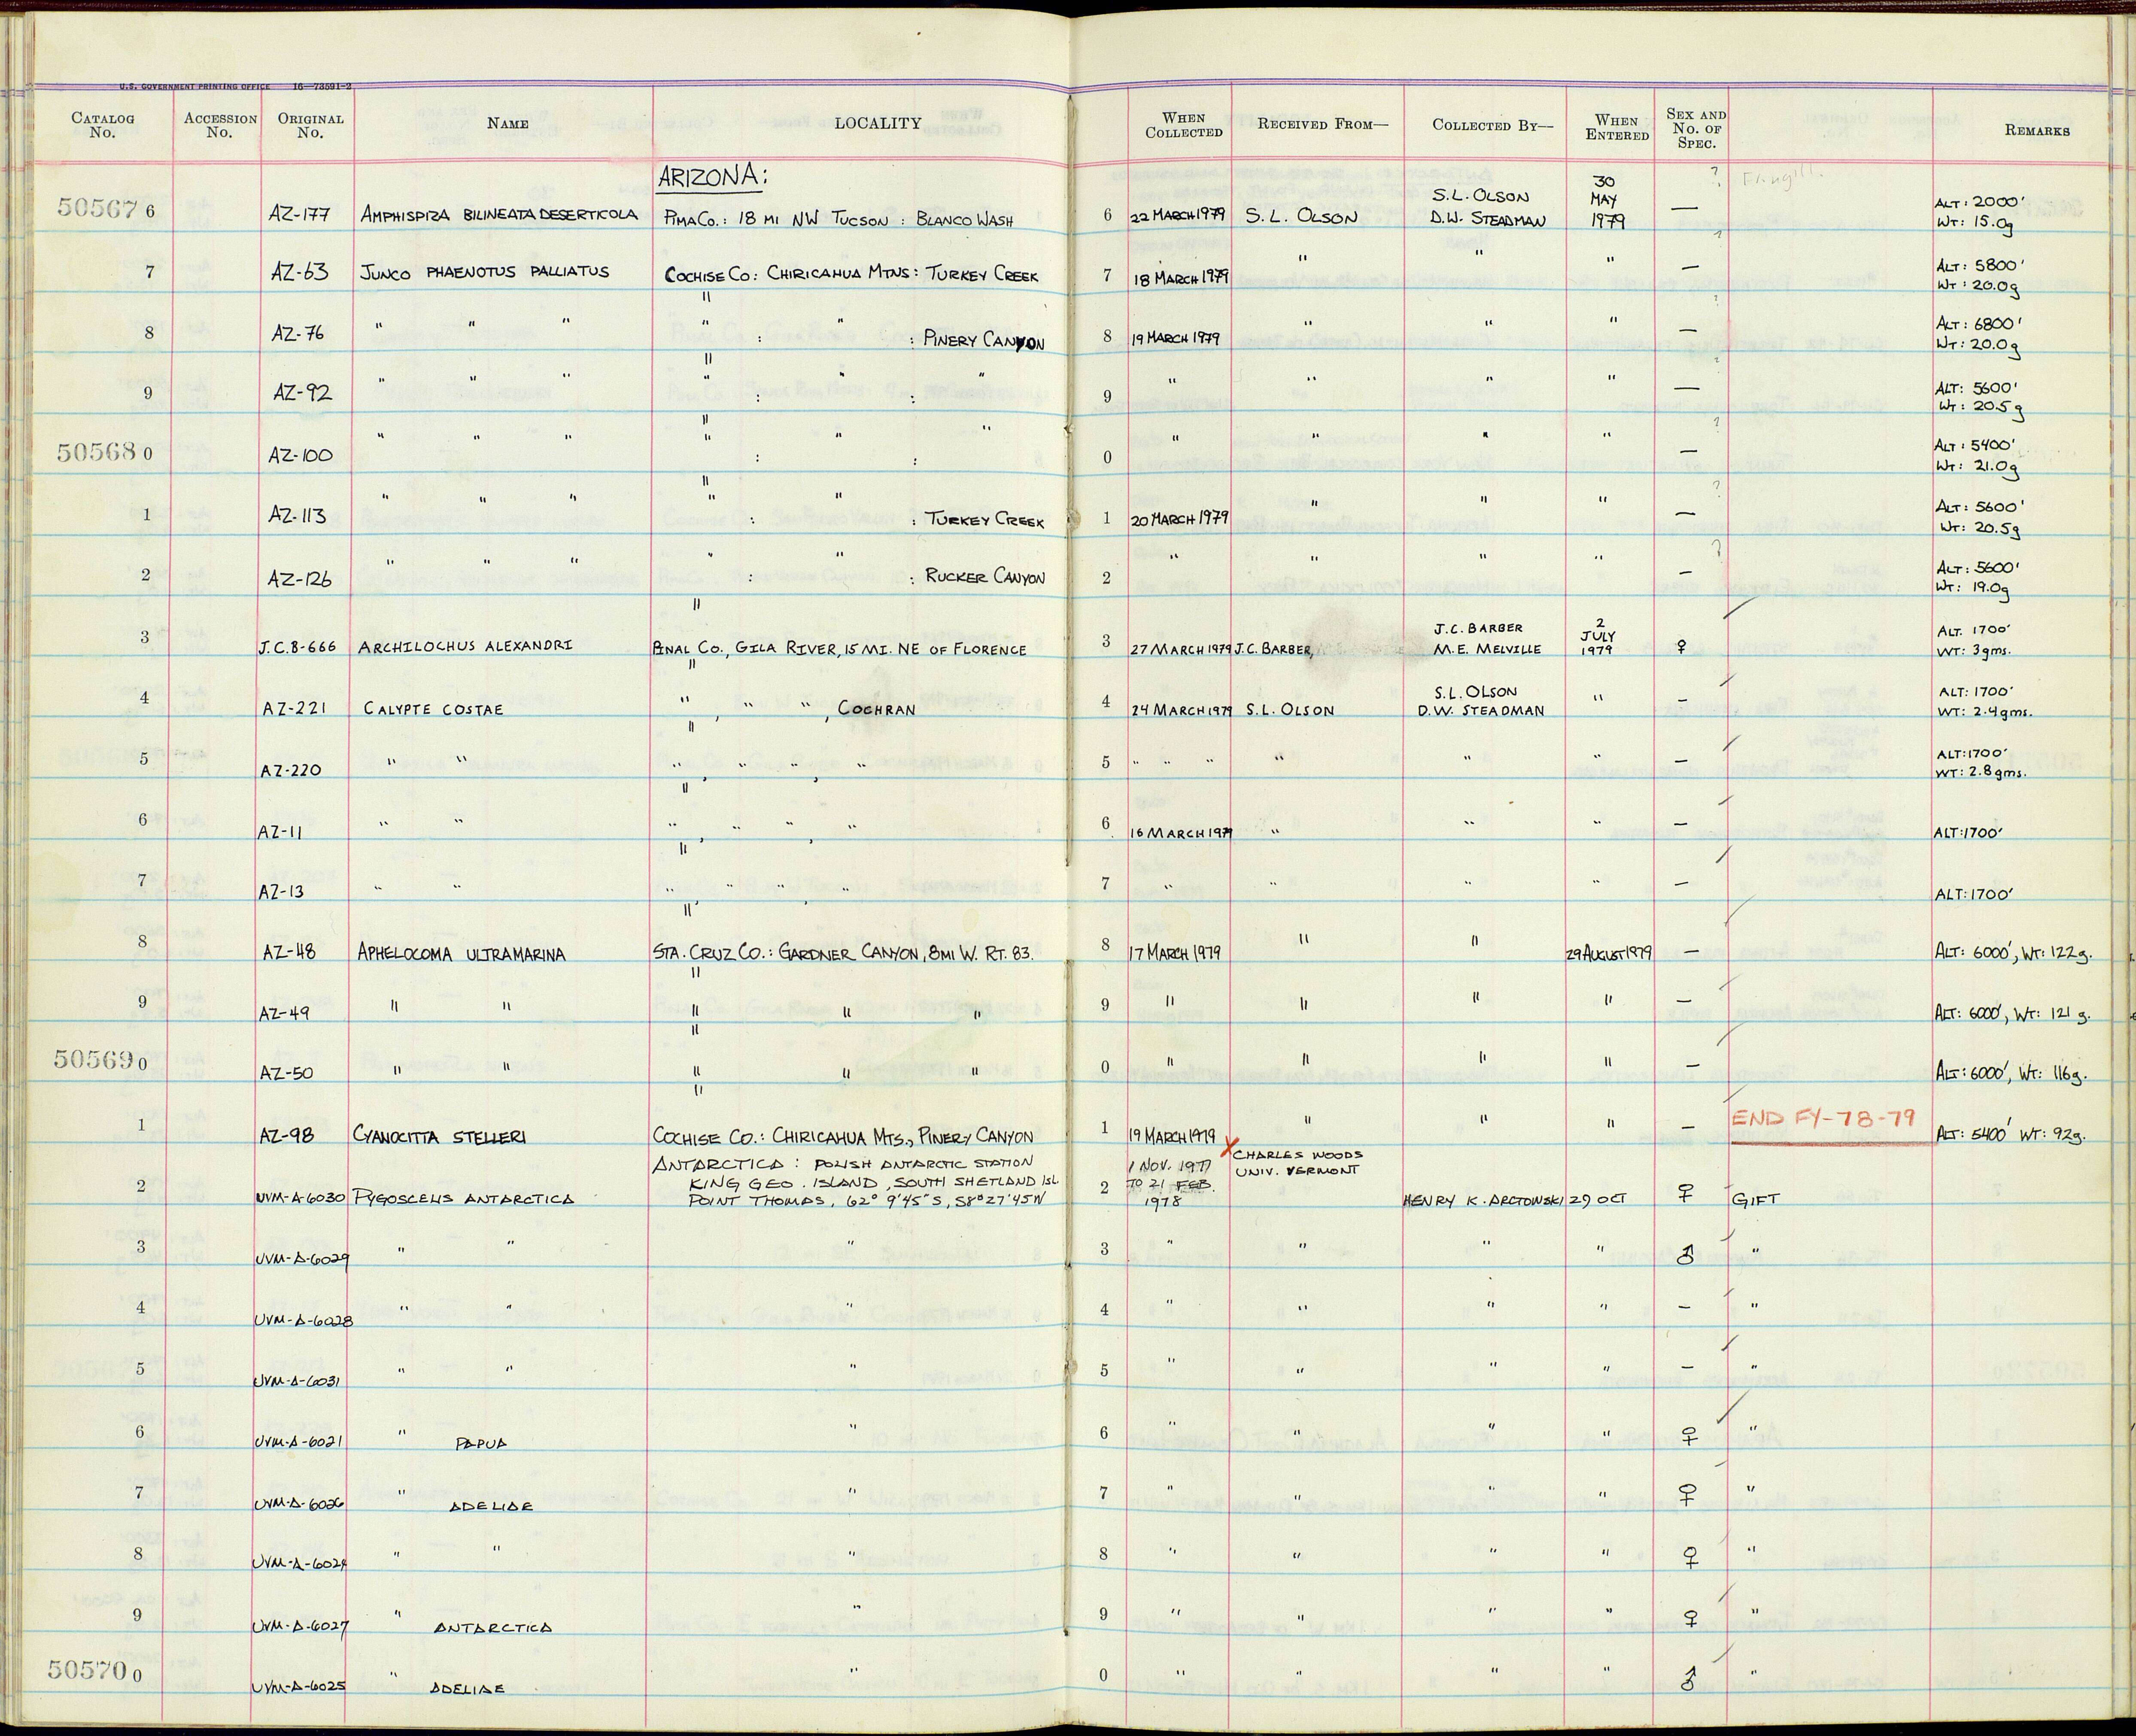 U.S. GOVERNMENT PRINTING OFFICE 16—73591-2
CATALOG No. ACCESSION No. ORIGINAL No. NAME LOCALITY WHEN COLLECTED RECEIVED FROM— COLLECTED BY— WHEN ENTERED SEX AND No. OF SPEC. REMARKS
ARIZONA:
505676 AZ-177 AMPHISPIZA BILINEATA DESERTICOLA PIMA CO.: 18 MI NW TUCSON : BLANCO WASH 6 22 MARCH 1979 S.L. OLSON S.L. OLSON D.W. STEADMAN 30 MAY 1979 — ? ALT: 2000' WT: 15.0g
7 AZ-63 JUNCO PHAENOTUS PALLIATUS COCHISE CO: CHIRICAHUA MTNS: TURKEY CREEK 7 18 MARCH 1979 " " " — ? ALT: 5800' WT: 20.0g
8 AZ-76 " " " " " : " : PINERY CANYON 8 19 MARCH 1979 " " " — ? ALT: 6800' WT: 20.0g
9 AZ-92 " " " " " : " : " 9 " " " " — ? ALT: 5600' WT: 20.5g
505680 AZ-100 " " " " " : " : " 0 " " " " — ? ALT: 5400' WT: 21.0g
1 AZ-113 " " " " " : " : TURKEY CREEK 1 20 MARCH 1979 " " " — ? ALT: 5600' WT: 20.5g
2 AZ-126 " " " " : " : RUCKER CANYON 2 " " " " — ? ALT: 5600' WT: 19.0g
3 J.C.B-666 ARCHILOCHUS ALEXANDRI " PINAL CO., GILA RIVER, 15 MI. NE OF FLORENCE 3 27 MARCH 1979 J.C. BARBER, J.C. BARBER M.E. MELVILLE 2 JULY 1979 ♀ ALT. 1700' WT: 3gms.
4 AZ-221 CALYPTE COSTAE " " , " " , COCHRAN 4 24 MARCH 1979 S.L. OLSON S.L. OLSON D.W. STEADMAN " — ALT: 1700' WT: 2.4gms.
5 AZ-220 " " " " , " " , " 5 " " " " " " — ALT: 1700' WT: 2.8gms.
6 AZ-11 " " " " , " " , " 6 16 MARCH 1979 " " " — ALT: 1700'
7 AZ-13 " " " " , " " , " 7 " " " " — ALT: 1700'
8 AZ-48 APHELOCOMA ULTRAMARINA " STA. CRUZ CO.: GARDNER CANYON, 8MI W. RT. 83. 8 17 MARCH 1979 " " 29 AUGUST 1979 — ALT: 6000', WT: 122g.
9 AZ-49 " " " " " " 9 " " " " — ALT: 6000', WT: 121g.
505690 AZ-50 " " " " " " 0 " " " " — ALT: 6000', WT: 116g.
1 AZ-98 CYANOCITTA STELLERI " COCHISE CO.: CHIRICAHUA MTS., PINERY CANYON 1 19 MARCH 1979 " " " — END FY-78-79 ALT: 5400' WT: 92g.
2 UVM-A-6030 PYGOSCELIS ANTARCTICA ANTARCTICA: POLISH ANTARCTIC STATION KING GEO. ISLAND, SOUTH SHETLAND ISL POINT THOMAS, 62° 9'45"S, 58°27'45W 2 1 NOV. 1977 TO 21 FEB. 1978 X CHARLES WOODS UNIV. VERMONT HENRY K. ARCTOWSKI 29 OCT ♀ GIFT
3 UVM-A-6029 " " " 3 " " " " ♂ "
4 UVM-A-6028 " " " 4 " " " " — "
5 UVM-A-6031 " " " 5 " " " " — "
6 UVM-A-6021 " PAPUA " 6 " " " " ♀ "
7 UVM-A-6026 " ADELIAE " 7 " " " " ♀ "
8 UVM-A-6024 " " " 8 " " " " ♀ "
9 UVM-A-6027 " ANTARCTICA " 9 " " " " ♀ "
505700 UVM-A-6025 " ADELIAE " 0 " " " " ♂ "